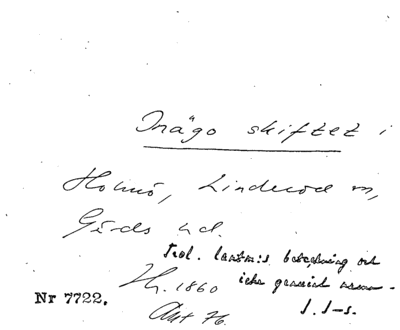 Inägo skiftet i
Holmö, Linderöd sn,
Gärds hd.
Trol. lantm:s beteckning och
icke genuint namn.
Hg. 1860
Akt 76.
J. S-s.
Nr 7722.